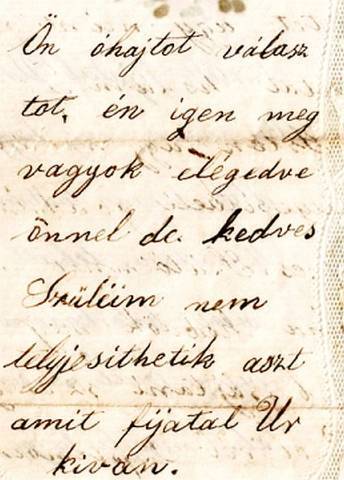 Ön óhajtot válasz
tot, én igen meg
vagyok elégedve
önnel de kedves
Szüleim nem
telyjesithetik aszt
amit fijatal Úr
kiván.